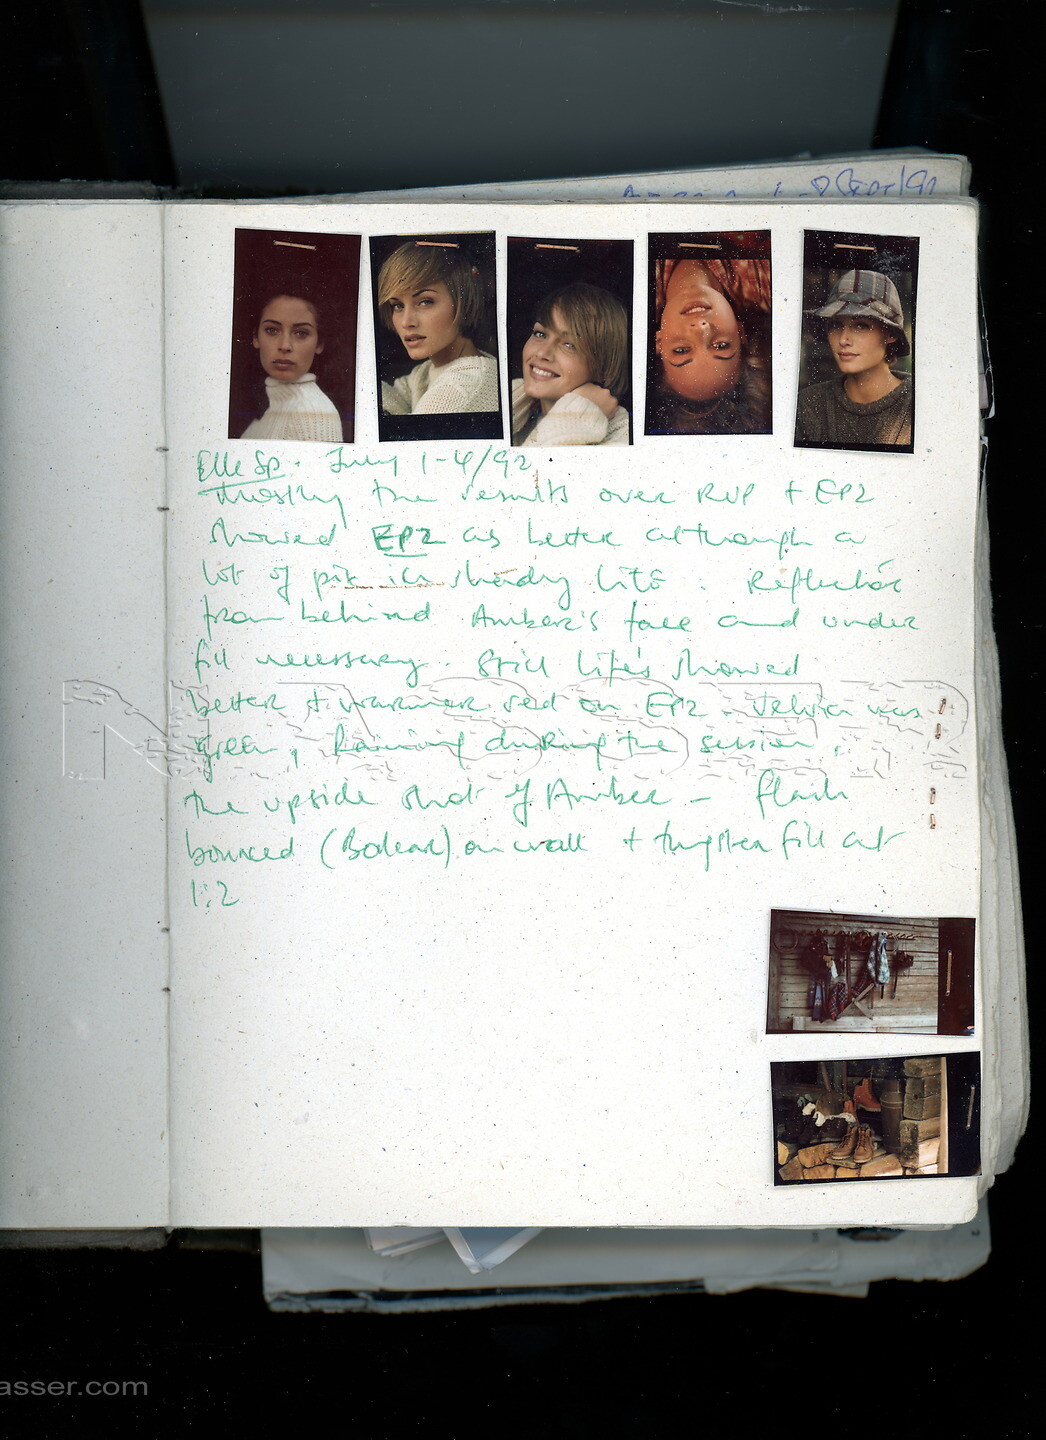 Sept/91
Elle Sp. July 1-4/92
Mostly the results over RVP + EP2
showed EP2 as better although a
lot of pink in shady lite. Reflector
from behind Amber's face and under
fill necessary. Still life's showed
better + warmer red on EP2. was
green, Raining during the session,
the upside shot of Amber - flash
bounced (Balcar) on wall + tungsten fill at
1:2
NASSER
asser.com